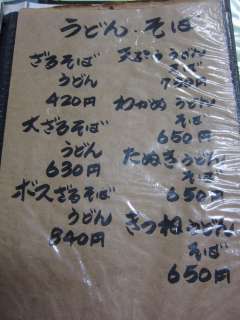 うどん・そば
ざるそば
うどん
420円
大ざるそば
うどん
630円
ボスざるそば
うどん
840円
天ぷらうどん
そば
750円
わかめうどん
そば
650円
たぬきうどん
そば
650円
きつねうどん
そば
650円